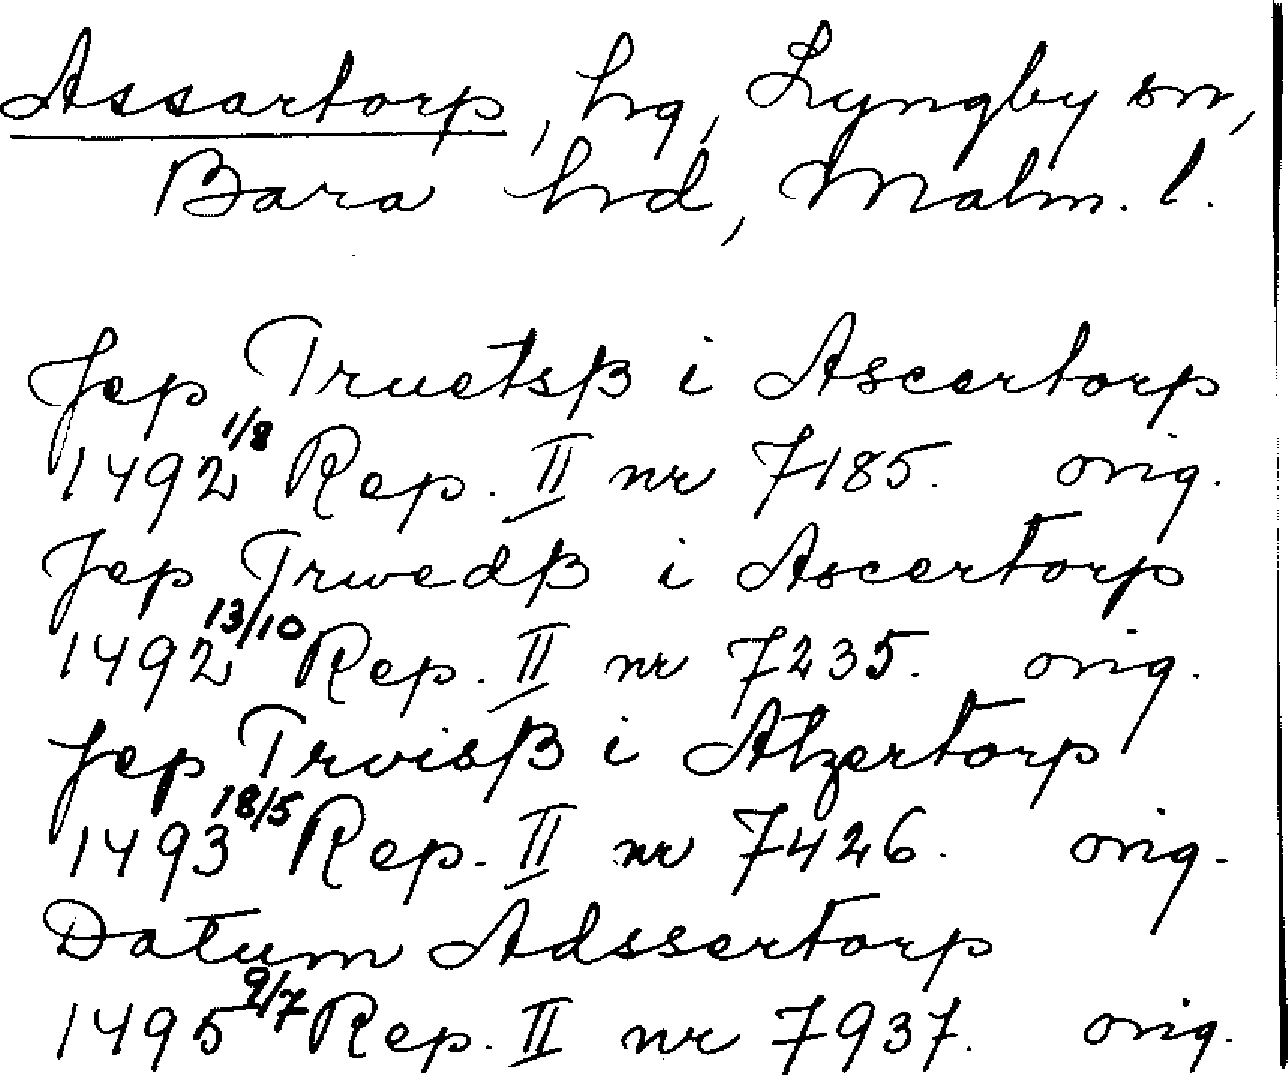 Assartorp, hg, Lyngby sn,
Bara hrd, Malm. l.
Jep Truetsß i Ascertorp
1492 1/8 Rep. II nr 7185. orig.
Jep Trwedß i Ascertorp
1492 13/10 Rep. II nr 7235. orig.
Jep Trvisß i Atzertorp
1493 18/5 Rep. II nr 7426. orig.
Datum Adssertorp
1495 9/7 Rep. II nr 7937. orig.